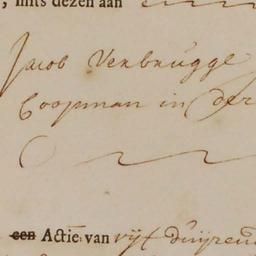 , mits dezen aan
Jacob Verbrugge
Coopman in der
een Actie van vijf duijzend